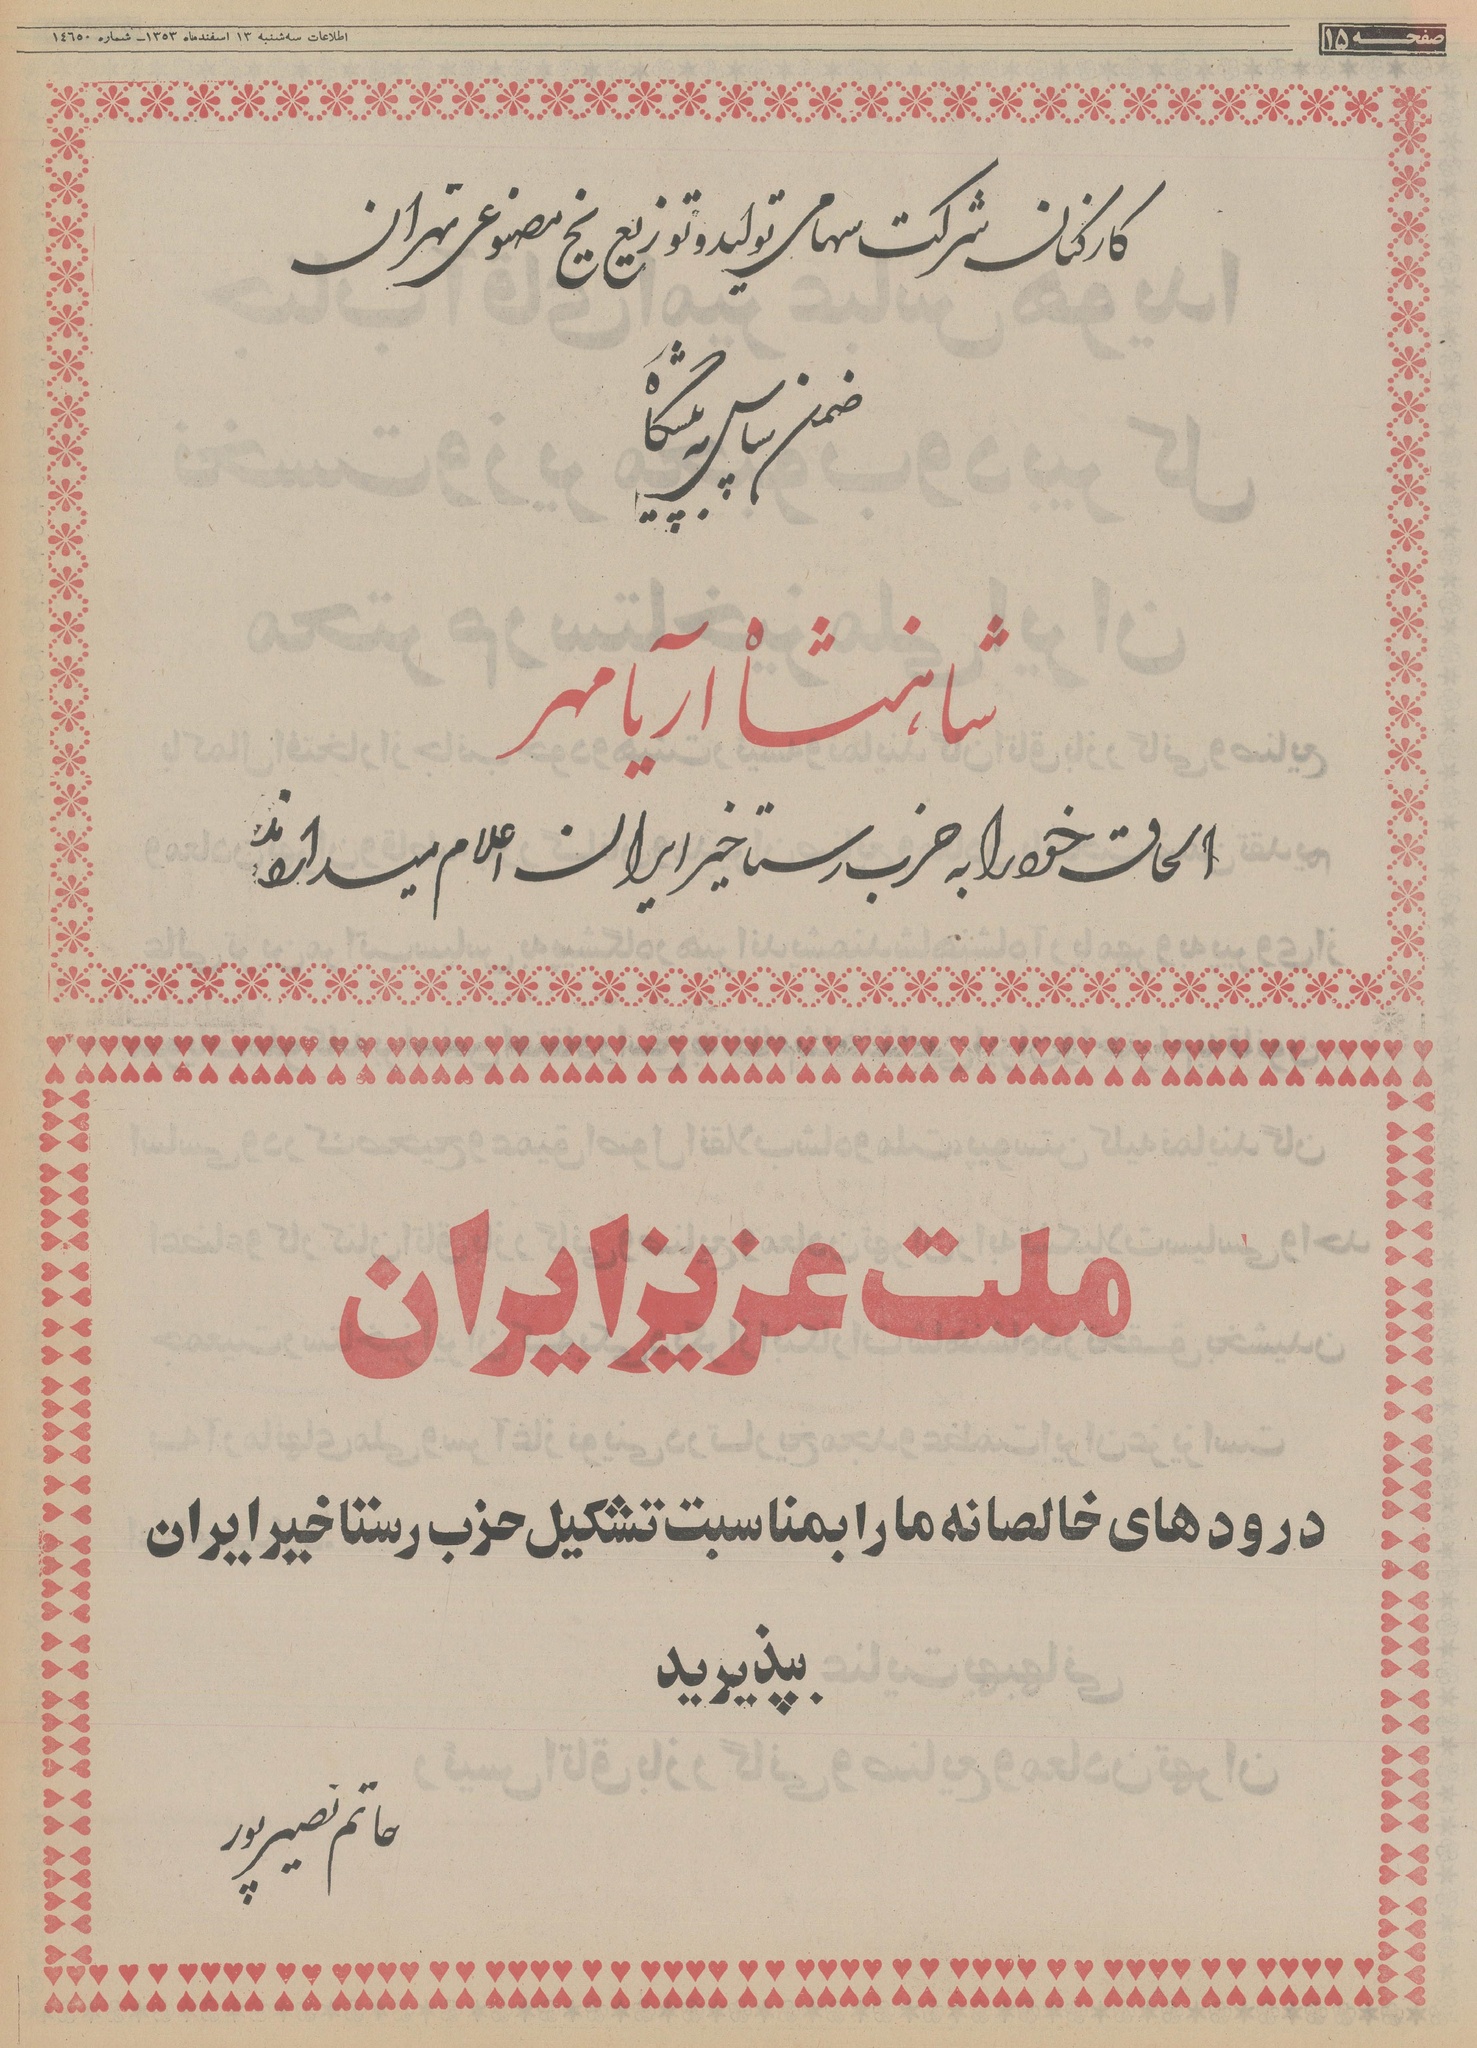 صفحه ۱۵
اطلاعات سه‌شنبه ۱۳ اسفندماه ۱۳۵۳ـ شماره ۱٤٦٥۰
کارکنان شرکت سهامی تولید و توزیع یخ مصنوعی تهران
ضمن سپاس به پیشگاه
شاهنشاه آریامهر
الحاق خود را به حزب رستاخیر ایران اعلام میدارند
ملت عزیز ایران
درودهای خالصانه ما را بمناسبت تشکیل حزب رستاخیر ایران
بپذیرید
حاتم نصیرپور